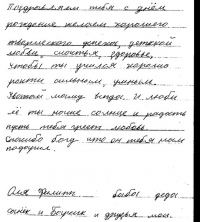 Поздравляем тебя с днём
рождение желаем хорошего
творческого успеха, детской
любви счастья, здоровье,
чтобы ты учился хорошо
расти сильным, умным.
маму
ты наше солнце и радость
пусть тебя греет любовь
Спасибо богу что он тебя нам
подарил.
Оля Филипп бабы деды
и Борика и друзья мои.